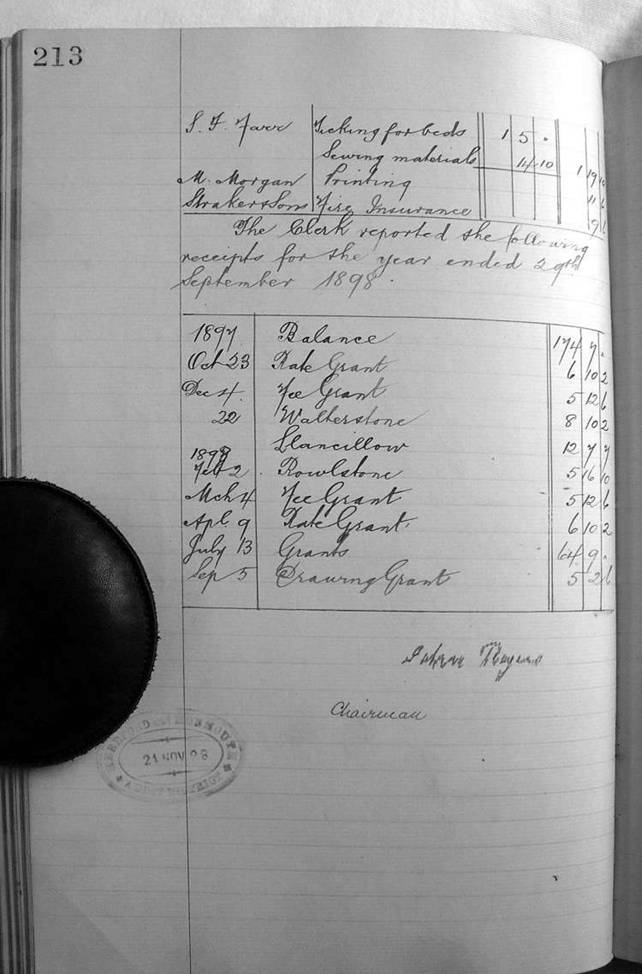 213
S. F. Farr Ticking for beds 1 5 .
Sewing materials 14 10 1 19 10
M. Morgan Printing 11 6
Straker & Sons Fire Insurance 9 6
The Clerk reported the following
receipts for the year ended 29th
September 1898.
1897 Balance 174 7 .
Oct 23 Rate Grant 6 10 2
Dec 4. Fee Grant 5 12 6
22 Walterstone 8 10 2
Llancillow 12 7 7
1898
Feb 2 Rowlstone 5 16 10
Mch 4 Fee Grant 5 12 6
Apl. 9 Rate Grant. 6 10 2
July 13 Grants 64 9 .
Sep 5 Drawing Grant 5 2 6
Chairman
HEREFORD AND MONMOUTH
21 NOV 98
AUDIT DISTRICT